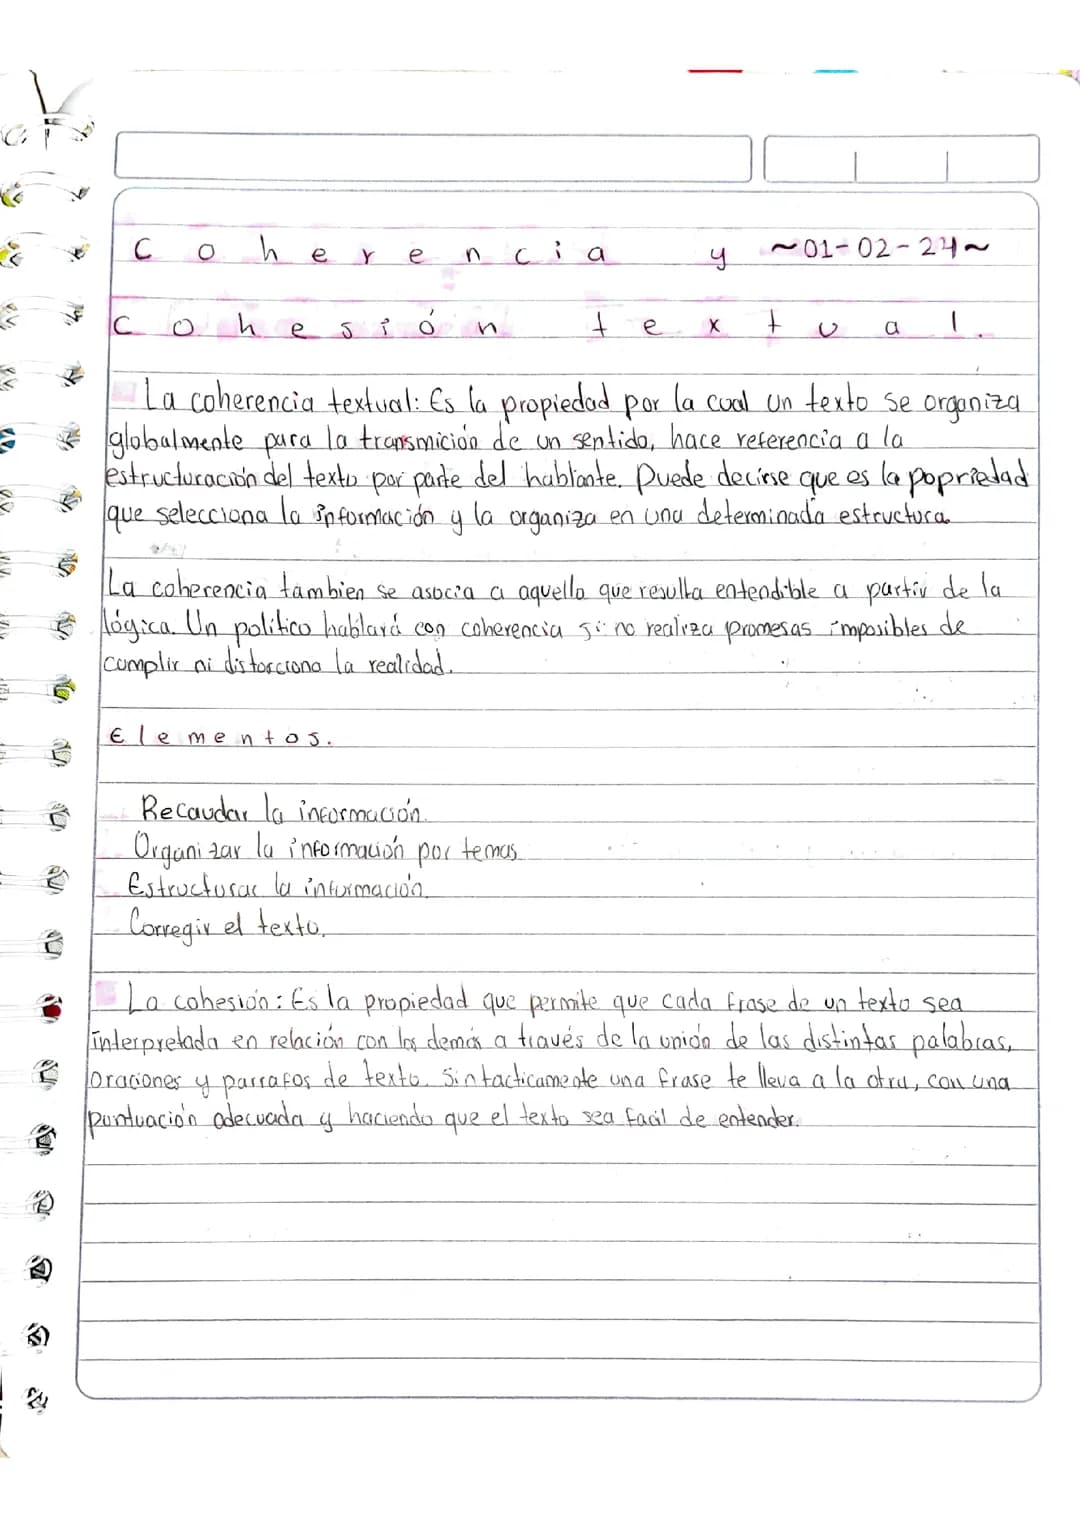 Coherencia y ~01-02-24~
Cohesión textual.
La coherencia textual: Es la propiedad por la cual un texto se organiza
globalmente para la transmición de un sentido, hace referencia a la
estructuración del texto por parte del hablante. Puede decirse que es la popriedad
que selecciona la información y la organiza en una determinada estructura.
La coherencia tambien se asocia a aquello que resulta entendible a partir de la
lógica. Un político hablará con coherencia si no realiza promesas imposibles de
cumplir ni distorciona la realidad.
Elementos.
Recaudar la información.
Organizar la información por temas
Estructurar la información.
Corregir el texto.
La cohesión: Es la propiedad que permite que cada frase de un texto sea
interpretada en relación con las demás a través de la unión de las distintas palabras,
oraciones y parrafos de texto. Sintacticamente una frase te lleva a la otra, con una
puntuación adecuada y haciendo que el texto sea facil de entender.